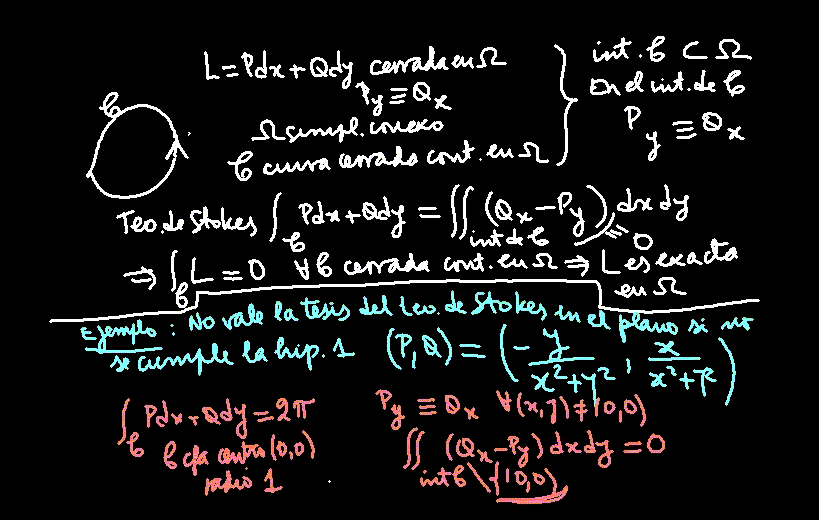 L = Pdx + Qdy cerrada en Ω
P_y ≡ Q_x
Ω simpl. conexo
C curva cerrada cont. en Ω
int. C ⊂ Ω
En el int. de C
P_y ≡ Q_x
C
Teo. de Stokes ∫_C Pdx + Qdy = ∬_{int de C} (Q_x - P_y) dx dy
= 0
⇒ ∫_C L = 0 ∀ C cerrada cont. en Ω ⇒ L es exacta
en Ω
Ejemplo : No vale la tesis del teo. de Stokes en el plano si no
se cumple la hip. 1 (P, Q) = (- y/(x²+y²), x/(x²+y²))
∫_C Pdx + Qdy = 2π
C cfa centro (0,0)
radio 1
P_y ≡ Q_x ∀(x,y) ≠ (0,0)
∬_{int C \ {(0,0)}} (Q_x - P_y) dx dy = 0